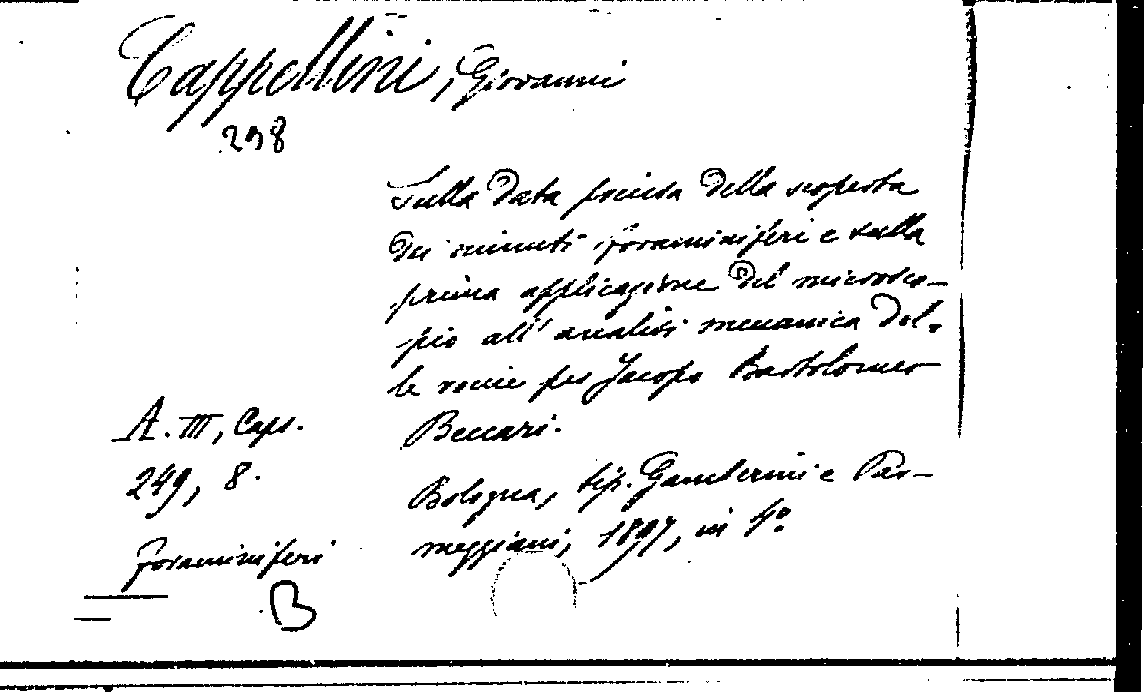 Cappellini, Giovanni
298
Sulla data precisa della scoperta
dei minuti foraminiferi e sulla
prima applicazione del microsco-
pio all'analisi meccanica del-
le rocce per Jacopo Bartolomeo
Beccari.
A. III, Caps.
249, 8.
Bologna, tip. Gamberini e Par-
meggiani, 1897, in 4º
Foraminiferi
B